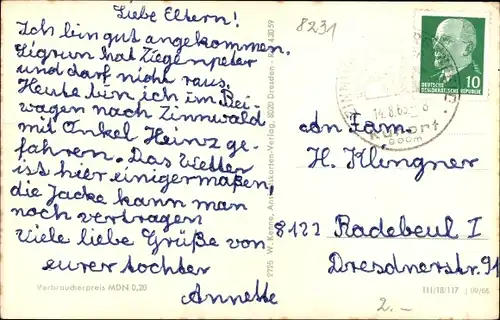 Liebe Eltern!
Ich bin gut angekommen.
Sigrun hat Ziegenpeter
und darf nicht raus.
Heute bin ich im Bei-
wagen nach Zinnwald
mit Onkel Heinz ge-
fahren. Das Wetter
ist hier einigermaßen,
die Jacke kann man
noch vertragen
Viele liebe Grüße von
eurer tochter
Annette
Verbraucherpreis MDN 0,20
2725 W. Kenne, Ansichtskarten-Verlag, 8020 Dresden
8231
DEUTSCHE
DEMOKRATISCHE REPUBLIK
10
14.8.66
Kurort
900m
an Fam.
H. Klingner
8122 Radebeul I
Dresdnerstr. 91
III/18/117 J 09/66
2.-